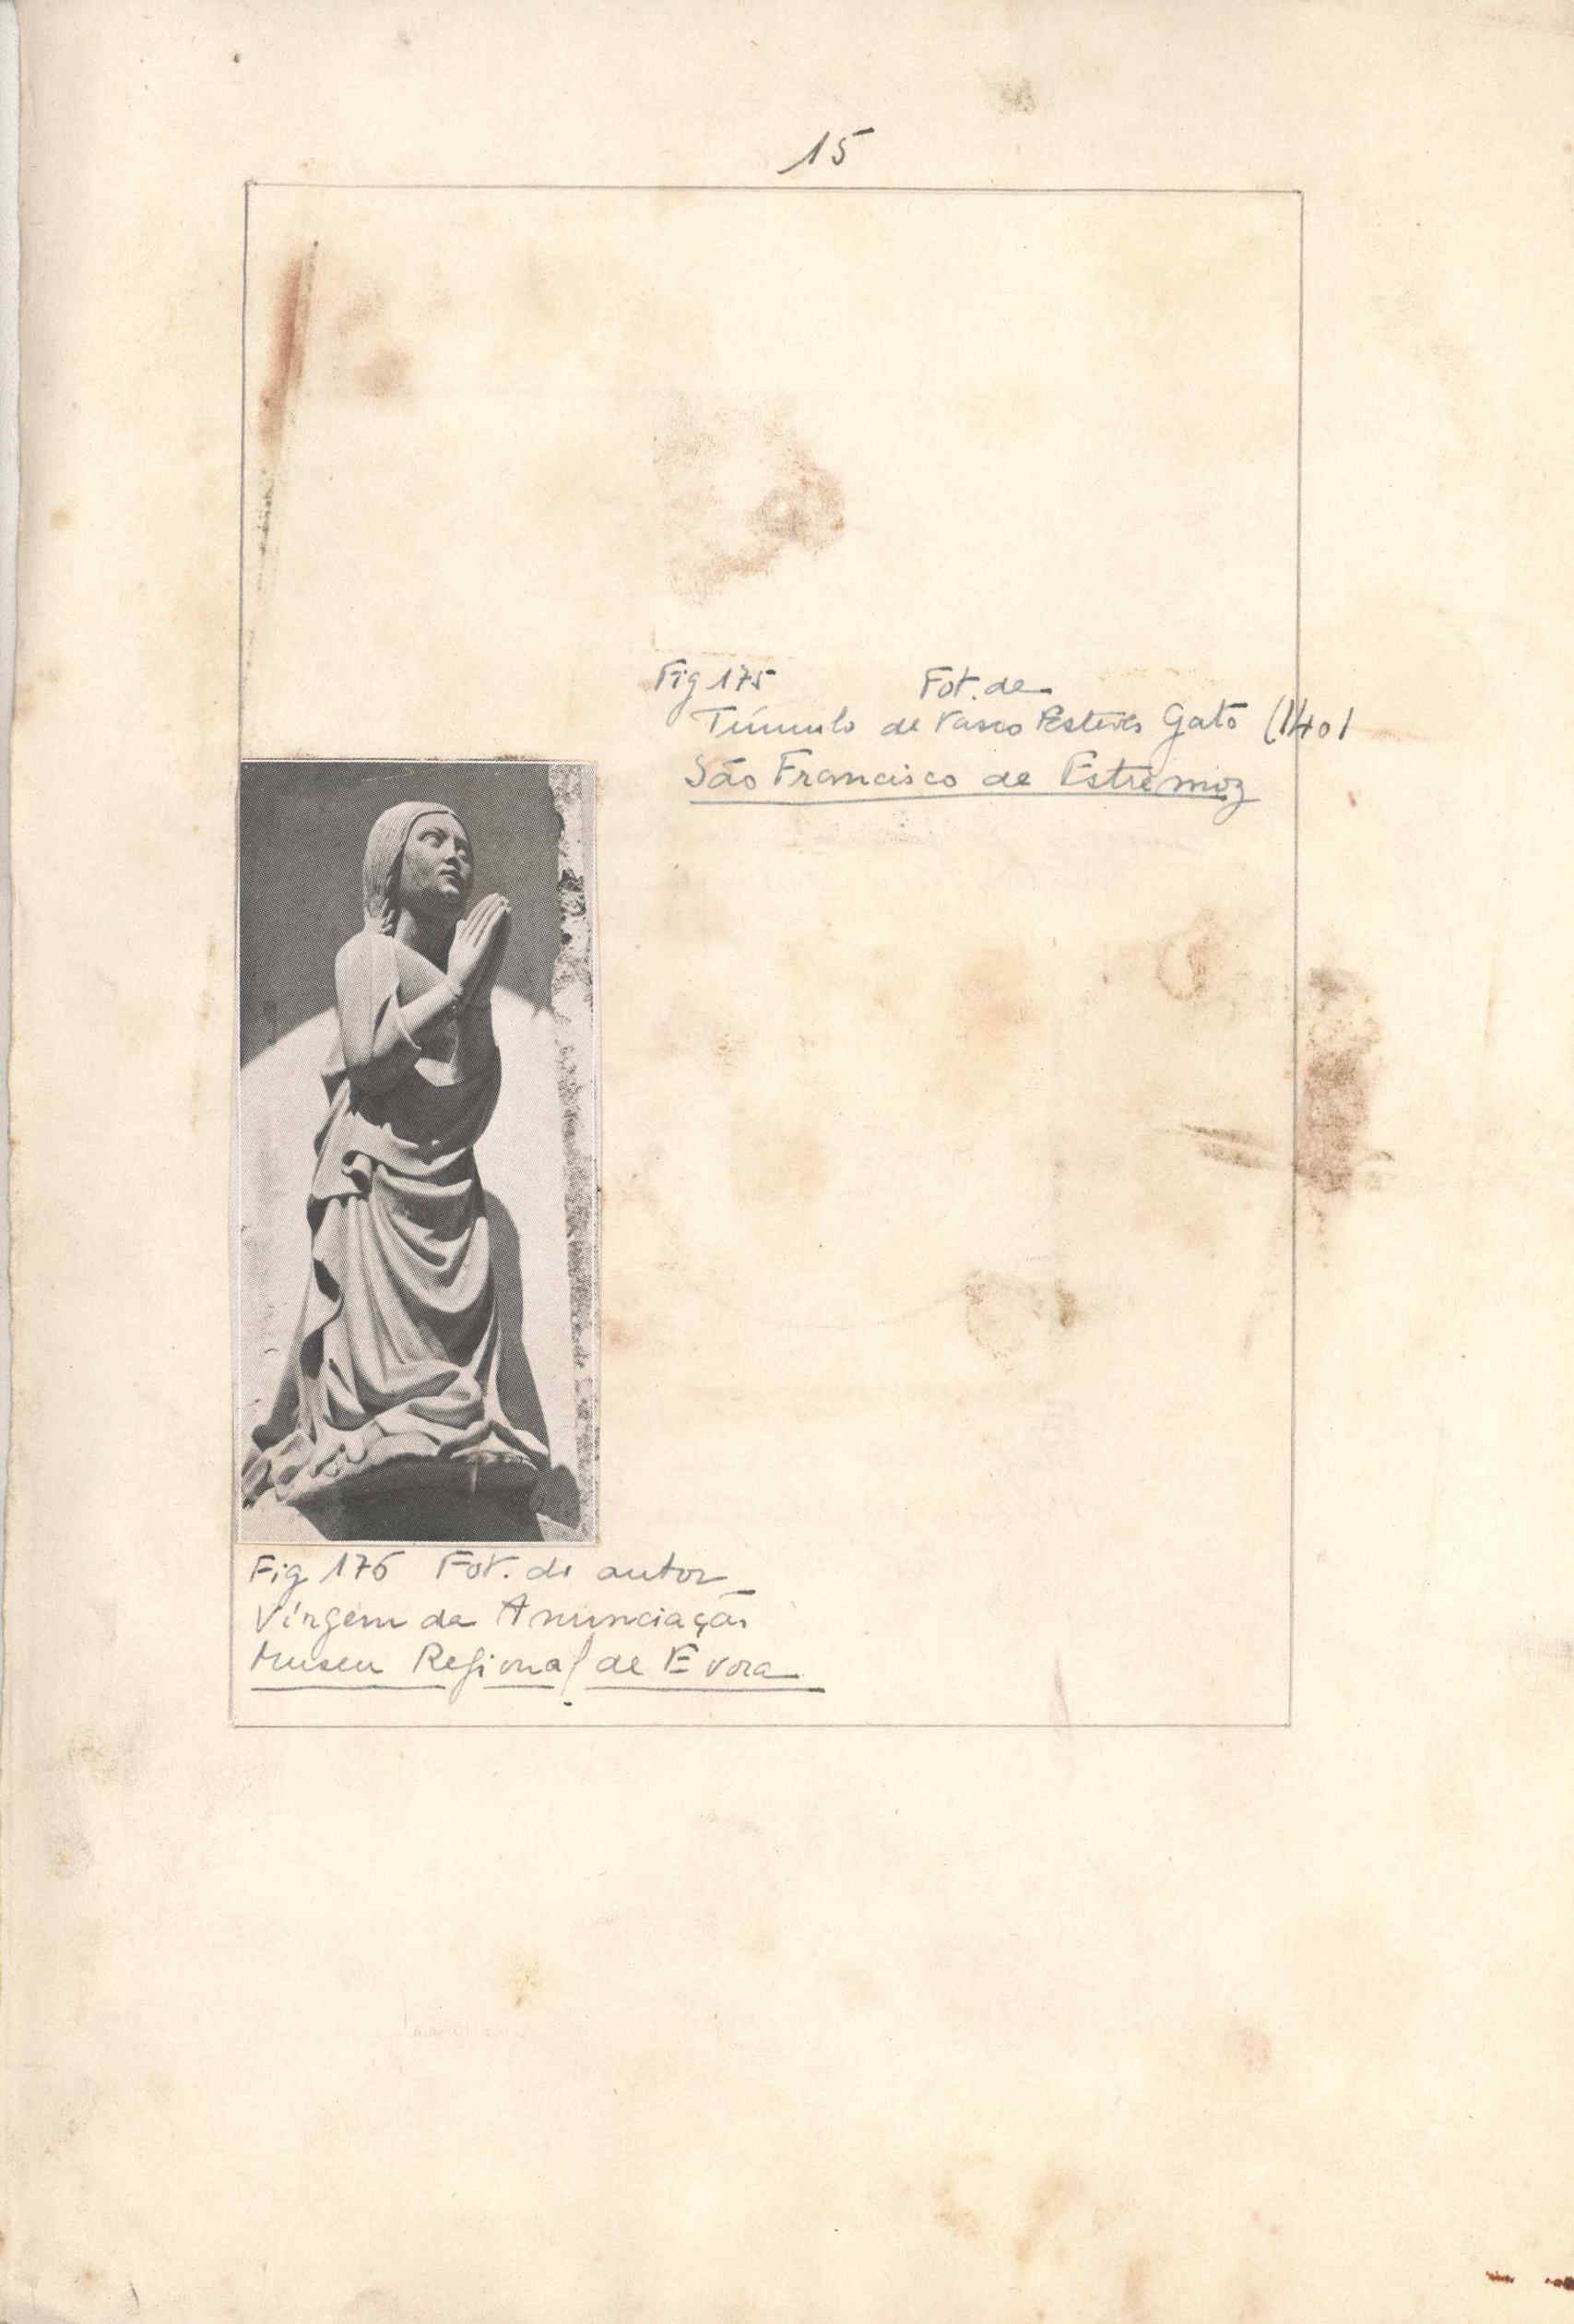 15
Fig 175 Fot. de
Túmulo de Vasco Esteves Gato (1401
São Francisco de Estremoz
Fig 176 Fot. do autor
Virgem da Anunciação
Museu Regional de Evora